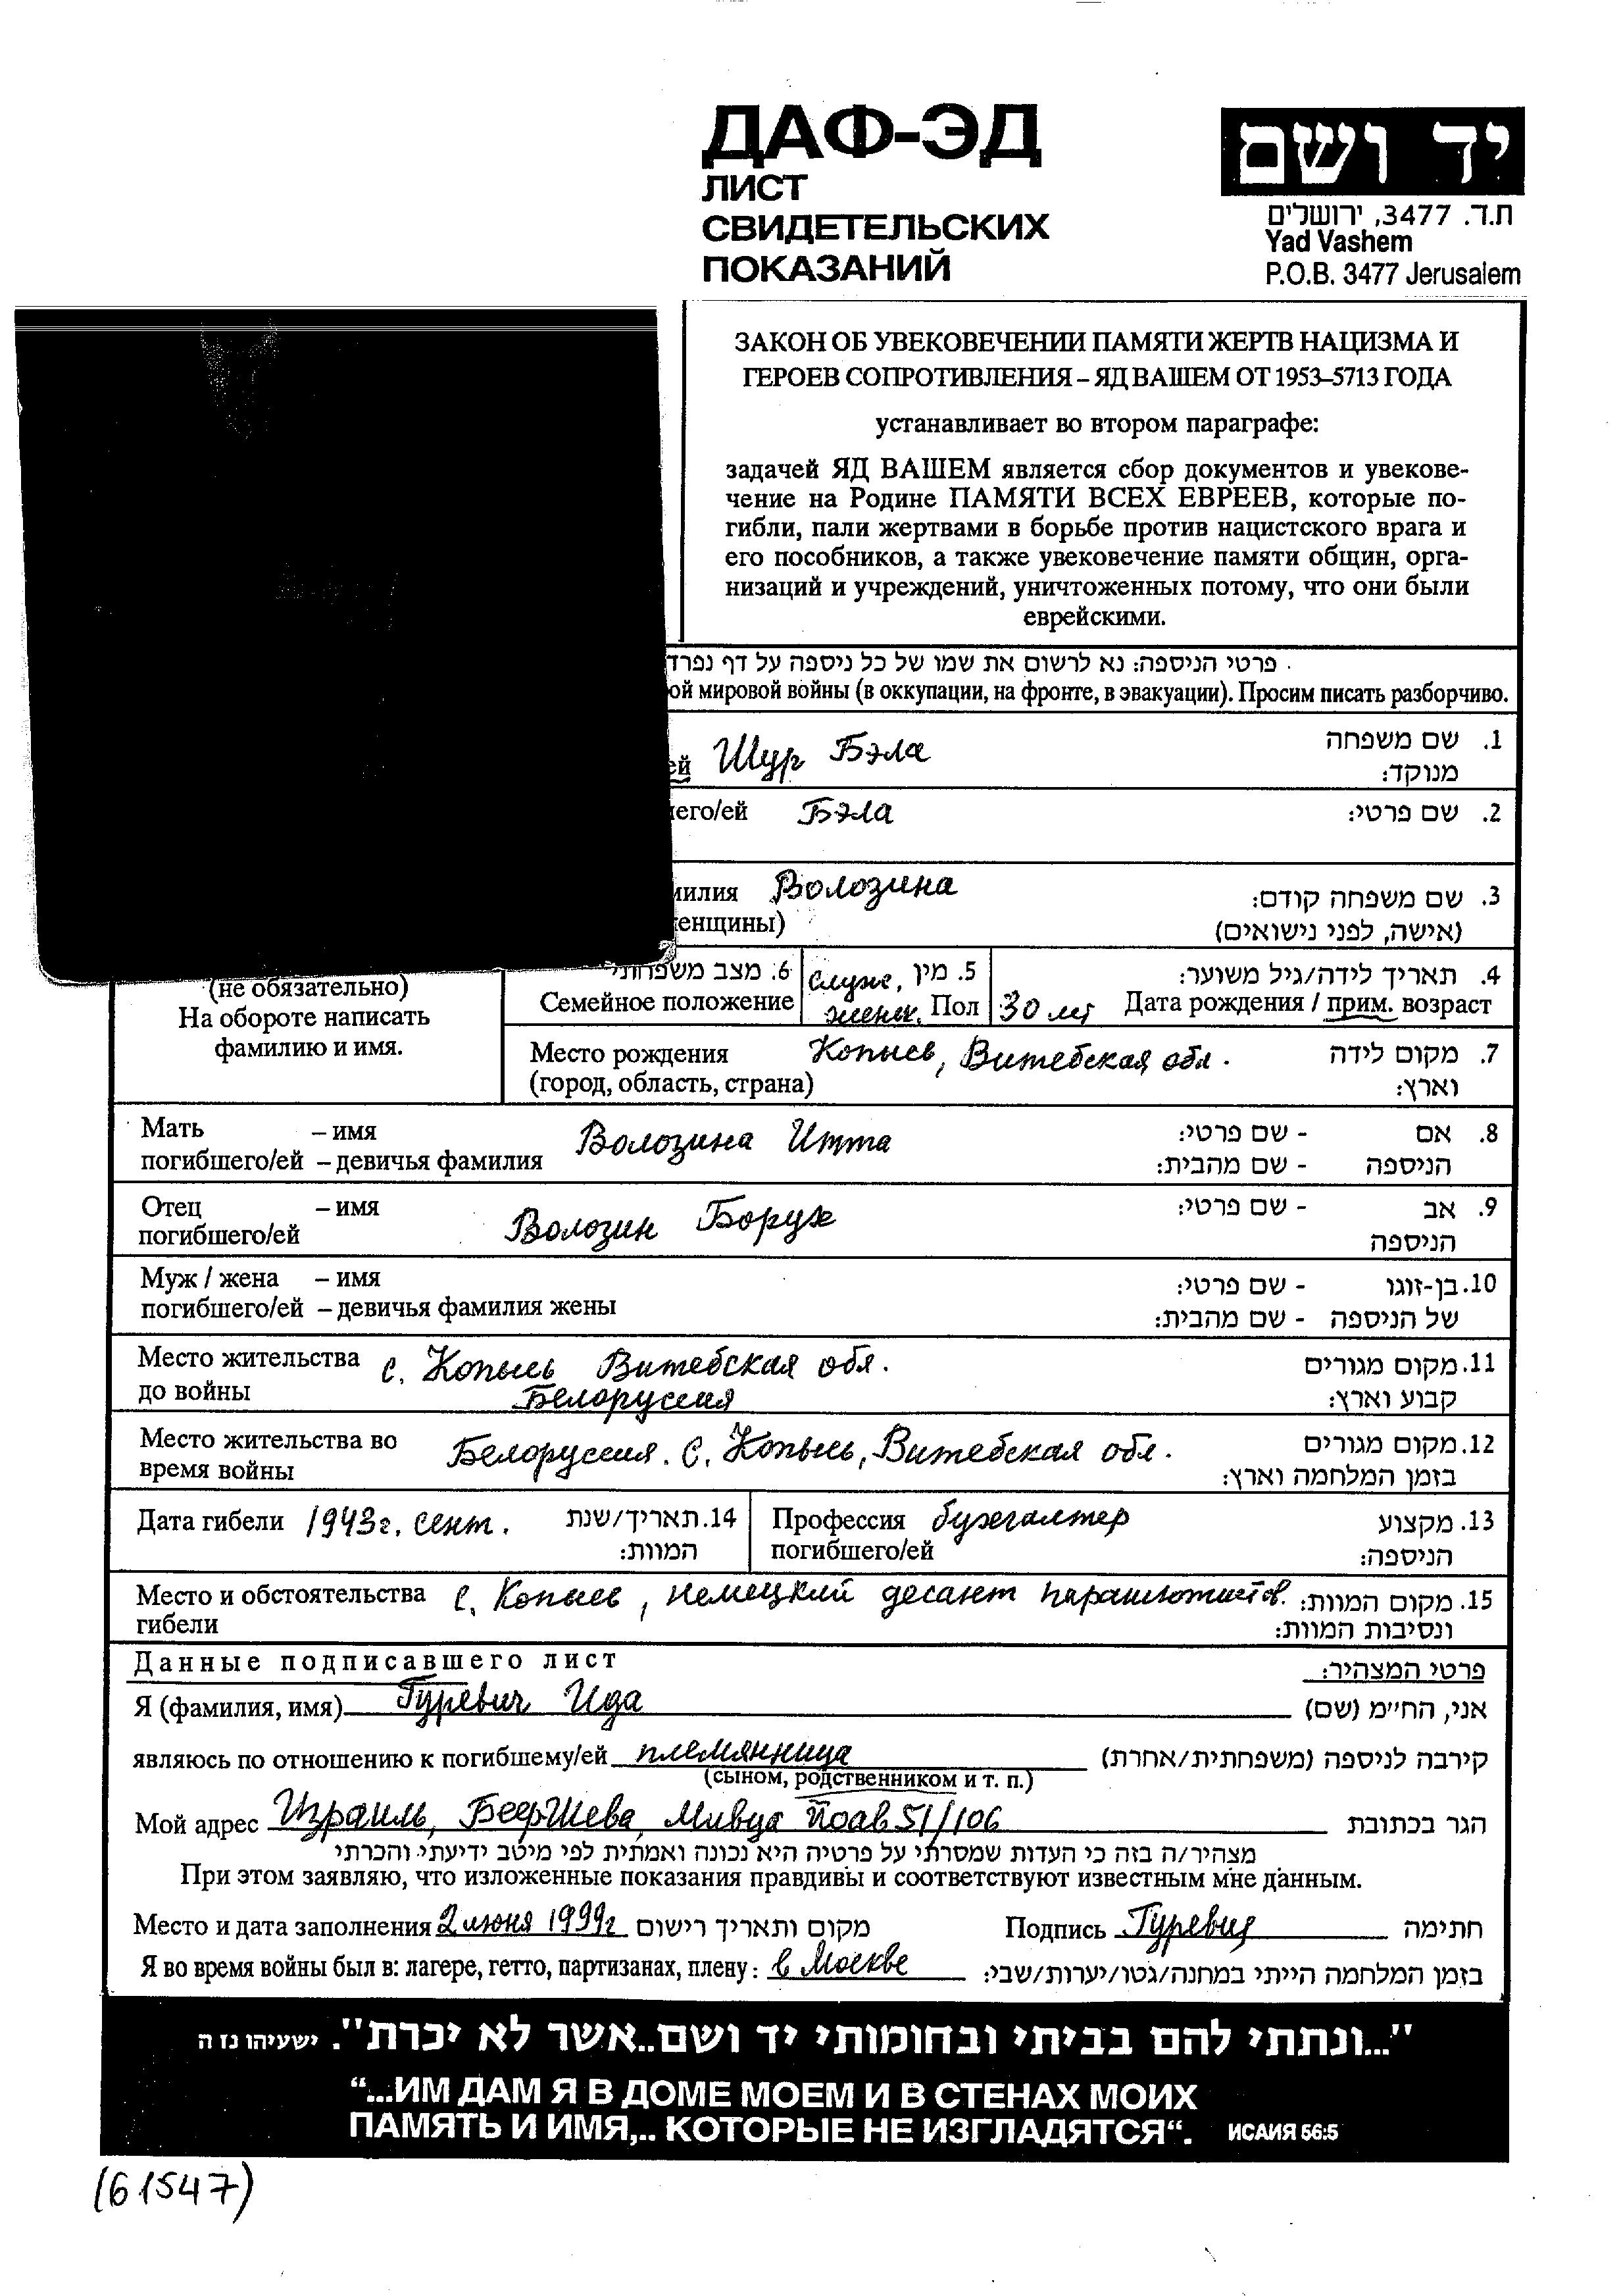 ДАФ-ЭД
ЛИСТ
СВИДЕТЕЛЬСКИХ
ПОКАЗАНИЙ
יד ושם
ת.ד. 3477, ירושלים
Yad Vashem
P.O.B. 3477 Jerusalem
ЗАКОН ОБ УВЕКОВЕЧЕНИИ ПАМЯТИ ЖЕРТВ НАЦИЗМА И
ГЕРОЕВ СОПРОТИВЛЕНИЯ – ЯД ВАШЕМ ОТ 1953–5713 ГОДА
устанавливает во втором параграфе:
задачей ЯД ВАШЕМ является сбор документов и увекове-
чение на Родине ПАМЯТИ ВСЕХ ЕВРЕЕВ, которые по-
гибли, пали жертвами в борьбе против нацистского врага и
его пособников, а также увековечение памяти общин, орга-
низаций и учреждений, уничтоженных потому, что они были
еврейскими.
פרטי הניספה: נא לרשום את שמו של כל ניספה על דף נפרד
ой мировой войны (в оккупации, на фронте, в эвакуации). Просим писать разборчиво.
ей Шур Бэла 1. שם משפחה
מנוקד:
его/ей Бэла 2. שם פרטי:
милия Волозина 3. שם משפחה קודם:
енщины) (אישה, לפני נישואים)
6. מצב משפחתי 5. מין 4. תאריך לידה/גיל משוער:
Семейное положение женск. Пол 30 лет Дата рождения / прим. возраст
(не обязательно)
На обороте написать
фамилию и имя.
Место рождения Копысь, Витебская обл. 7. מקום לידה
(город, область, страна) וארץ:
Мать – имя Волозина Итта 8. אם - שם פרטי:
погибшего/ей – девичья фамилия הניספה - שם מהבית:
Отец – имя Волозин Борух 9. אב - שם פרטי:
погибшего/ей הניספה
Муж / жена – имя 10. בן-זוגו - שם פרטי:
погибшего/ей – девичья фамилия жены של הניספה - שם מהבית:
Место жительства с. Копысь Витебская обл. 11. מקום מגורים
до войны Белоруссия קבוע וארץ:
Место жительства во Белоруссия. с. Копысь, Витебская обл. 12. מקום מגורים
время войны בזמן המלחמה וארץ:
Дата гибели 1943г. сент. 14. תאריך/שנת Профессия бухгалтер 13. מקצוע
המוות: погибшего/ей הניספה:
Место и обстоятельства с. Копысь, немецкий десант парашютистов. 15. מקום המוות:
гибели ונסיבות המוות:
Данные подписавшего лист פרטי המצהיר:
Я (фамилия, имя) Гуревич Ида אני, החי״מ (שם)
являюсь по отношению к погибшему/ей племянница קירבה לניספה (משפחתית/אחרת)
(сыном, родственником и т. п.)
Мой адрес Израиль, БеерШева, Мивца Йоав 51/106 הגר בכתובת
מצהיר/ה בזה כי העדות שמסרתי על פרטיה היא נכונה ואמתית לפי מיטב ידיעתי והכרתי
При этом заявляю, что изложенные показания правдивы и соответствуют известным мне данным.
Место и дата заполнения 2 июня 1999г מקום ותאריך רישום Подпись Гуревич חתימה
Я во время войны был в: лагере, гетто, партизанах, плену: в Москве בזמן המלחמה הייתי במחנה/גטו/יערות/שבי:
"...ונתתי להם בביתי ובחומותי יד ושם..אשר לא יכרת". ישעיהו נז ה
“...ИМ ДАМ Я В ДОМЕ МОЕМ И В СТЕНАХ МОИХ
ПАМЯТЬ И ИМЯ,.. КОТОРЫЕ НЕ ИЗГЛАДЯТСЯ“. ИСАИЯ 56:5
(61547)